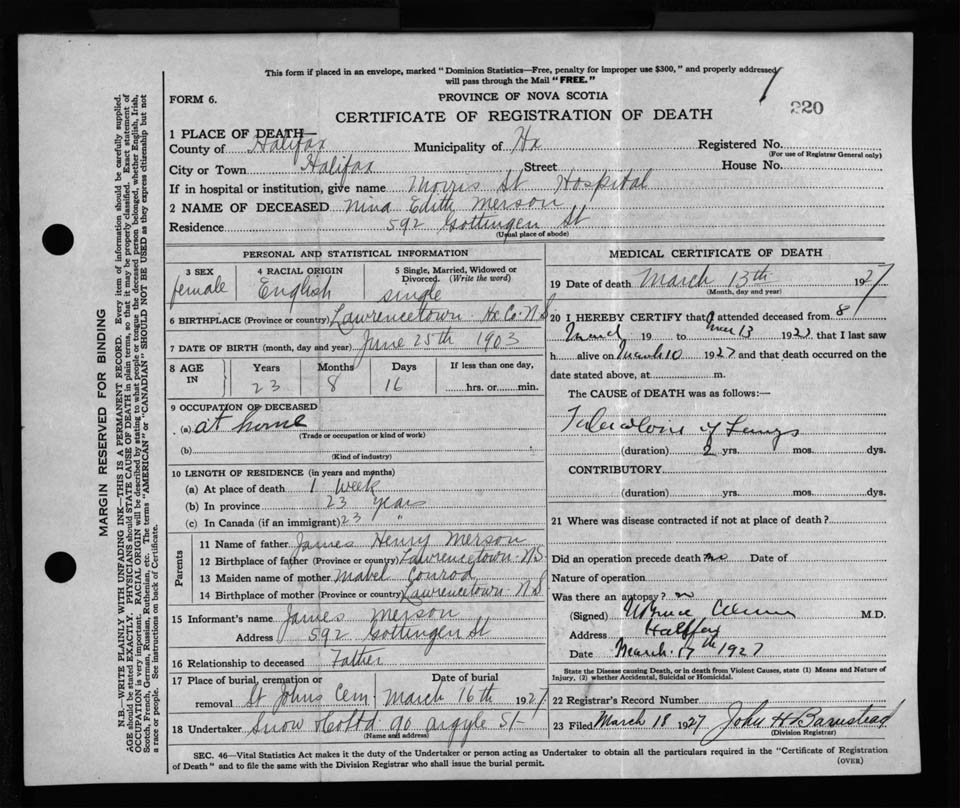 This form if placed in an envelope, marked "Dominion Statistics—Free, penalty for improper use $300," and properly addressed
will pass through the Mail "FREE."
FORM 6.
PROVINCE OF NOVA SCOTIA
220
CERTIFICATE OF REGISTRATION OF DEATH
1 PLACE OF DEATH—
County of Halifax Municipality of Hx Registered No.
(For use of Registrar General only)
City or Town Halifax Street House No.
If in hospital or institution, give name Morris St Hospital
2 NAME OF DECEASED Nina Edith Merson
Residence 592 Gottingen St
(Usual place of abode)
PERSONAL AND STATISTICAL INFORMATION
3 SEX 4 RACIAL ORIGIN 5 Single, Married, Widowed or
Divorced. (Write the word)
female English single
6 BIRTHPLACE (Province or country) Lawrencetown Hx Co. N.S
7 DATE OF BIRTH (month, day and year) June 25th 1903
8 AGE IN Years Months Days If less than one day,
23 8 16 hrs. or min.
9 OCCUPATION OF DECEASED
(a) at home
(Trade or occupation or kind of work)
(b)
(Kind of industry)
10 LENGTH OF RESIDENCE (in years and months)
(a) At place of death 1 week
(b) In province 23 years
(c) In Canada (if an immigrant) 23 "
Parents
11 Name of father James Henry Merson
12 Birthplace of father (Province or country) Lawrencetown N.S
13 Maiden name of mother Mabel Conrod
14 Birthplace of mother (Province or country) Lawrencetown N.S
15 Informant's name James Merson
Address 592 Gottingen St
16 Relationship to deceased Father
17 Place of burial, cremation or Date of burial
removal St Johns Cem. March 16th 1927
18 Undertaker Snow & Co Ltd 90 Argyle St
(Name and address)
MEDICAL CERTIFICATE OF DEATH
19 Date of death March 13th 1927
(Month, day and year)
20 I HEREBY CERTIFY that I attended deceased from 8
March 19 to Mar 13 1927 that I last saw
h alive on March 10 1927 and that death occurred on the
date stated above, at m.
The CAUSE of DEATH was as follows:—
Tuberculosis of Lungs
(duration) 2 yrs. mos. dys.
CONTRIBUTORY
(duration) yrs. mos. dys.
21 Where was disease contracted if not at place of death?
Did an operation precede death no Date of
Nature of operation
Was there an autopsy? no
(Signed) M.D.
Address Halifax
Date March 17th 1927
State the Disease causing Death, or in Death from Violent Causes, state (1) Means and Nature of
Injury, (2) whether Accidental, Suicidal or Homicidal.
22 Registrar's Record Number
23 Filed March 18 1927 John H Barnstead
(Division Registrar)
SEC. 46—Vital Statistics Act makes it the duty of the Undertaker or person acting as Undertaker to obtain all the particulars required in the "Certificate of Registration
of Death" and to file the same with the Division Registrar who shall issue the burial permit.
(OVER)
MARGIN RESERVED FOR BINDING
N.B.—WRITE PLAINLY WITH UNFADING INK—THIS IS A PERMANENT RECORD. Every item of information should be carefully supplied.
AGE should be stated EXACTLY. PHYSICIANS should STATE CAUSE OF DEATH in plain terms, so that it may be properly classified. Exact statement of
OCCUPATION is very important. RACIAL ORIGIN will be described by stating to what people or tongue the deceased person belonged, whether English, Irish,
Scotch, French, German, Russian, Ruthenian, etc. The terms "AMERICAN" or "CANADIAN" SHOULD NOT BE USED as they express citizenship but not
a race or people. See instructions on back of Certificate.